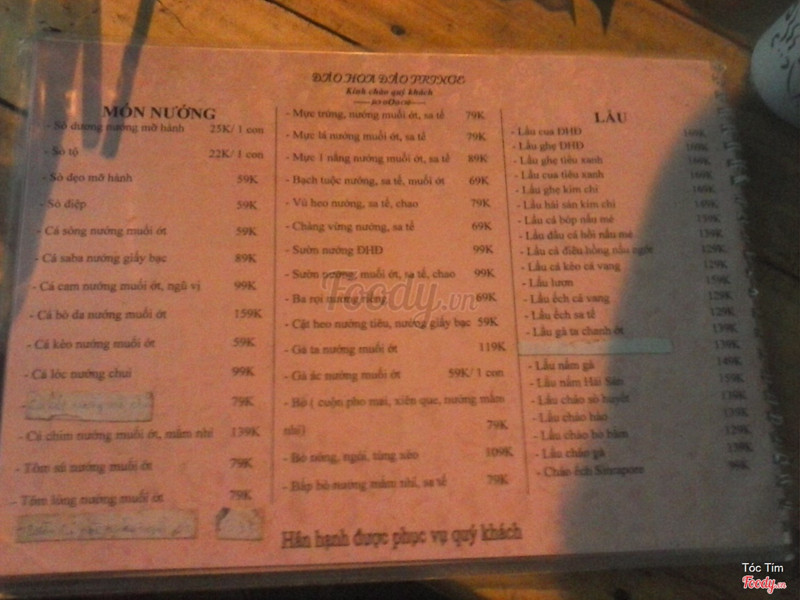 ĐẢO HOA ĐÀO PRINCE
Kính chào quý khách
MÓN NƯỚNG
- Sò dương nướng mỡ hành 25K/ 1 con
- Sò tộ 22K/ 1 con
- Sò dẹo mỡ hành 59K
- Sò điệp 59K
- Cá sông nướng muối ớt 59K
- Cá saba nướng giấy bạc 89K
- Cá cam nướng muối ớt, ngũ vị 99K
- Cá bò da nướng muối ớt 159K
- Cá kèo nướng muối ớt 59K
- Cá lóc nướng chui 99K
79K
- Cá chim nướng muối ớt, mắm nhĩ 139K
- Tôm sú nướng muối ớt 79K
- Tôm lòng nướng muối ớt 79K
- Mực trứng, nướng muối ớt, sa tế 79K
- Mực lá nướng muối ớt, sa tế 79K
- Mực 1 nắng nướng muối ớt, sa tế 89K
- Bạch tuộc nướng, sa tế, muối ớt 69K
- Vú heo nướng, sa tế, chao 79K
- Chàng vừng nướng, sa tế 69K
- Sườn nướng ĐHĐ 99K
- Sườn nướng, muối ớt, sa tế, chao 99K
- Ba rọi nướng riềng 69K
- Cật heo nướng tiêu, nướng giấy bạc 59K
- Gà ta nướng muối ớt 119K
- Gà ác nướng muối ớt 59K/ 1 con
- Bò ( cuộn pho mai, xiên que, nướng mắm
nhĩ) 79K
- Bò nóng, ngói, tùng xẻo 109K
- Bắp bò nướng mắm nhĩ, sa tế 79K
LẨU
- Lẩu cua ĐHĐ 169K
- Lẩu ghẹ ĐHĐ 169K
- Lẩu ghẹ tiêu xanh 169K
- Lẩu cua tiêu xanh 169K
- Lẩu ghẹ kim chi 169K
- Lẩu hải sản kim chi 149K
- Lẩu cá bóp nấu mẻ 159K
- Lẩu đầu cá hồi nấu mẻ 139K
- Lẩu cá điêu hồng nấu ngót 129K
- Lẩu cá kèo cá vang 129K
- Lẩu lươn 159K
- Lẩu ếch cá vang 129K
- Lẩu ếch sa tế 129K
- Lẩu gà ta chanh ớt 139K
139K
- Lẩu nấm gà 149K
- Lẩu nấm Hải Sản 159K
- Lẩu cháo sò huyết 139K
- Lẩu cháo hào 139K
- Lẩu cháo bò bằm 129K
- Lẩu cháo gà 139K
- Cháo ếch Sincrapore 99K
Hân hạnh được phục vụ quý khách
Foody.vn
Tóc Tim
Foody.vn